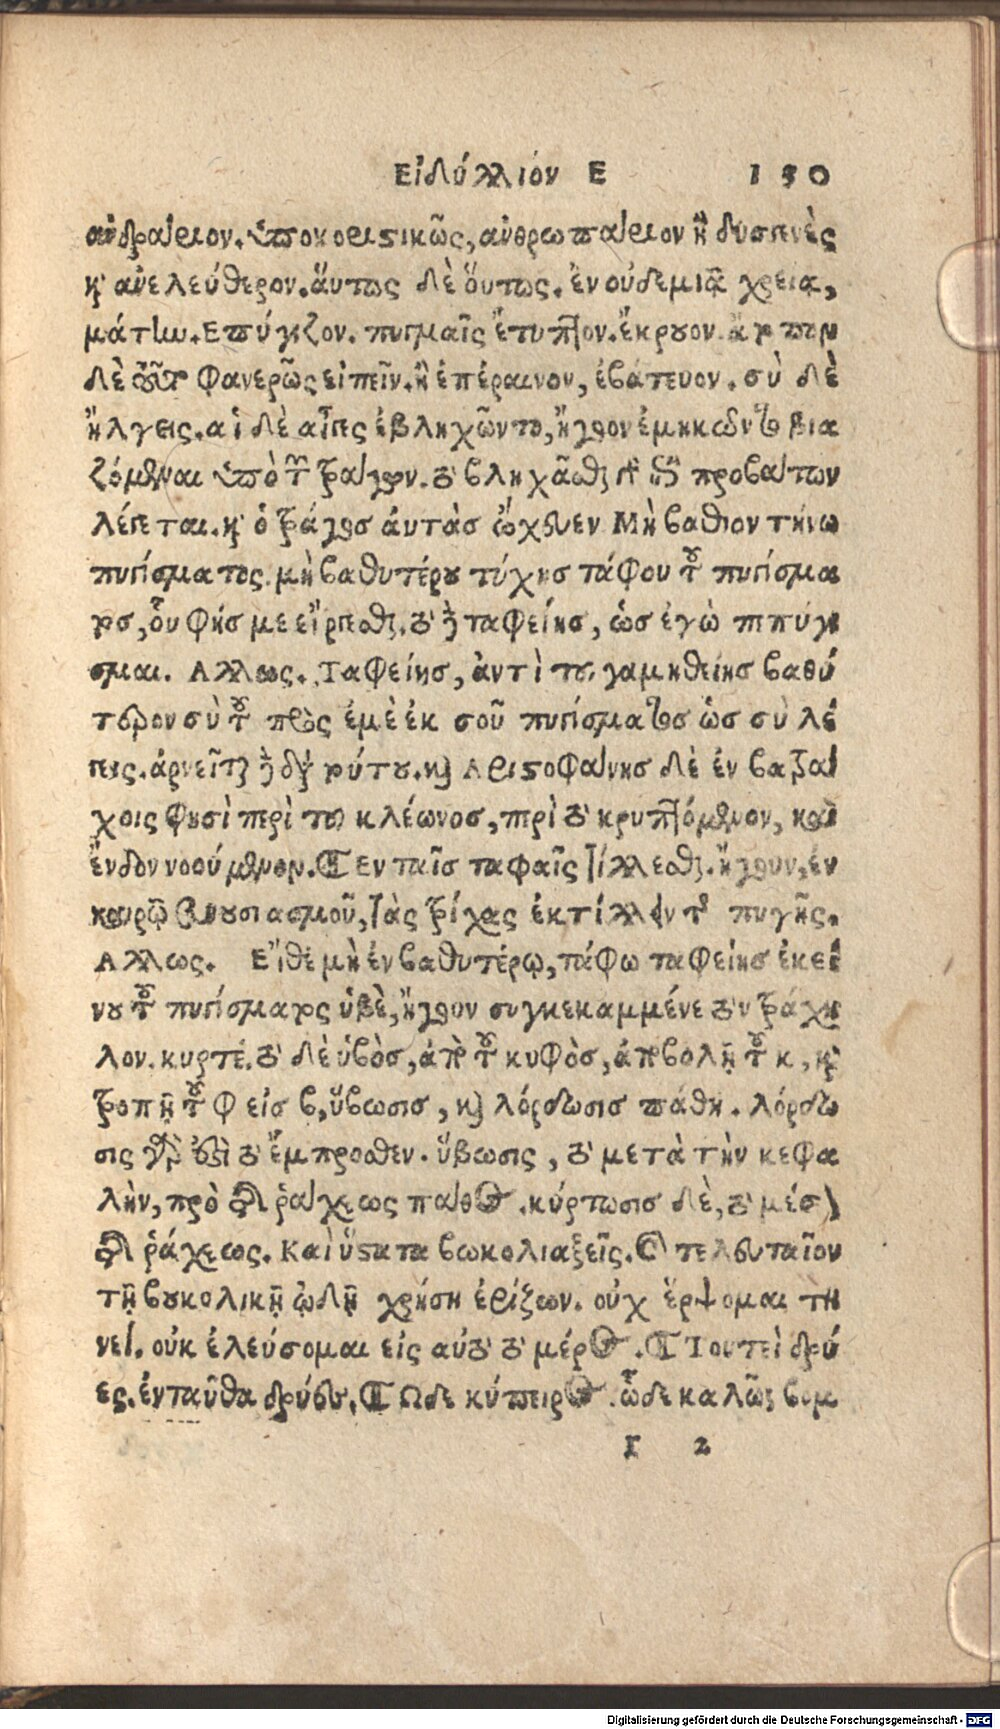 Εἰδύλλιόν Ε 150
ἀνδράριον. ὑποκοριστικῶς, ἀνθρωπάριον ἢ δυσγενὲς
καὶ ἀνελεύθερον. αὕτως δὲ οὕτως. ἐν οὐδεμιᾷ χρείᾳ,
μάτην. Ἐπύγιζον. πυγμαῖς ἔτυπτον. ἔκρουον.
δὲ φανερῶς εἰπεῖν. ἢ ἐπέραινον, ἐβάτευον. σὺ δὲ
ἤλγεις. αἱ δὲ αἶγες ἐβληχῶντο, ἤγουν ἐμηκῶντο βια
ζόμεναι ὑπὸ τῶν τράγων. τὸ βληχᾶσθαι ἐπὶ τῶν προβάτων
λέγεται. καὶ ὁ τράγοσ ἀυτὰσ ὤχευεν Μὴ βάθιον τήνω
πυγίσματος. μὴ βαθυτέρου τύχησ τάφου τοῦ πυγίσμα
τοσ, οὗ φήσ με εἴργεσθαι. τὸ ταφείησ, ὡσ ἐγὼ πεπύγι
σμαι. Αλλως. Ταφείησ, ἀντὶ τοῦ, γαμηθείησ βαθύ
τερον σὺ τοῦ πρὸς ἐμὲ ἐκ σοῦ πυγίσματοσ ὡσ σὺ λέ
γεις. ἀρνεῖται διὰ τούτου. καὶ Αριστοφάνησ δὲ ἐν βατρά
χοις φησὶ περὶ τοῦ κλέωνοσ, περὶ τὸ κρυπτόμενον, καὶ
ἔνδον νοούμενον. ¶ Εν ταῖσ ταφαῖς τίλλεσθαι. ἤγουν, ἐν
καιρῷ τοῦ συνουσιασμοῦ, τὰς τρίχας ἐκτίλλειν τῆς πυγῆς.
Αλλως. Εἴθε μὴ ἐν βαθυτέρῳ, τάφω ταφείησ ἐκεί
νου τοῦ πυγίσματοσ ὑβὲ, ἤγουν συγκεκαμμένε τὸν τράχη
λον. κυρτέ. τὸ δὲ ὑβὸσ, ἀπὸ τοῦ κυφὸσ, ἀποβολῇ τοῦ κ, καὶ
τροπῇ τοῦ φ εἰσ β, ὕβωσισ, καὶ λόρδωσισ πάθη. λόρδω
σις μὲν ἐστὶ τὸ ἔμπροσθεν. ὕβωσις, τὸ μετὰ τὴν κεφα
λὴν, πρὸ τῆς ῥάχεως πάθος. κύρτωσισ δὲ, τὸ μέσον
τῆς ῥάχεως. Καὶ ὕστατα βωκολιαξεῖς. τὸ τελευταῖον
τῇ βουκολικῇ ᾠδῇ χρήσῃ ἐρίζων. οὐχ ἕρψομαι τη
νεί. οὐκ ἐλεύσομαι εἰς αὐτὸ τὸ μέρος. ¶ Τουτεὶ δρύ
ες. ἐνταῦθα δρύες. ¶ Ωδε κύπειρος. ὧδε καλῶς βομ
I 2
Digitalisierung gefördert durch die Deutsche Forschungsgemeinschaft - DFG